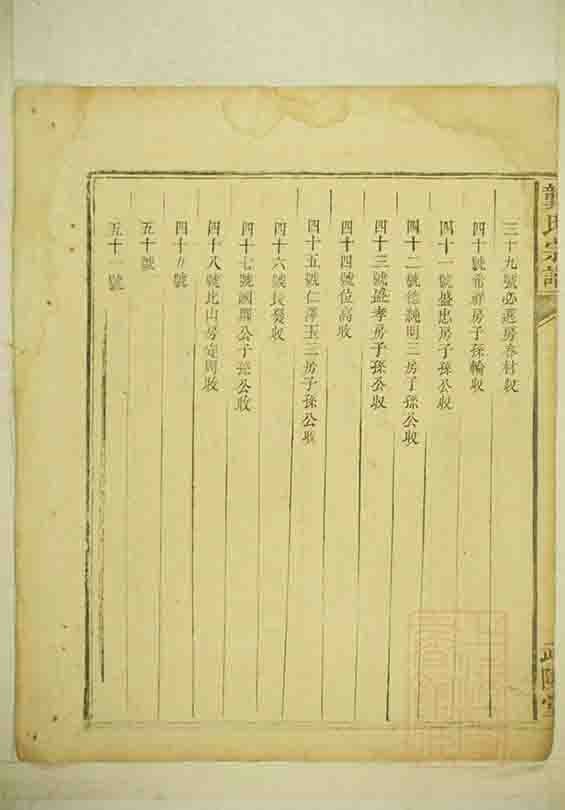 龔氏宗譜
三十九號必選房春材收
四十號希祥房子孫輪收
四十一號盛忠房子孫公收
四十二號德純明三房子孫公收
四十三號盛孝房子孫公收
四十四號位高收
四十五號仁澤玉三房子孫公收
四十六號長發收
四十七號國 公子孫公收
四十八號北山房定周收
四十九號
五十號
五十一號